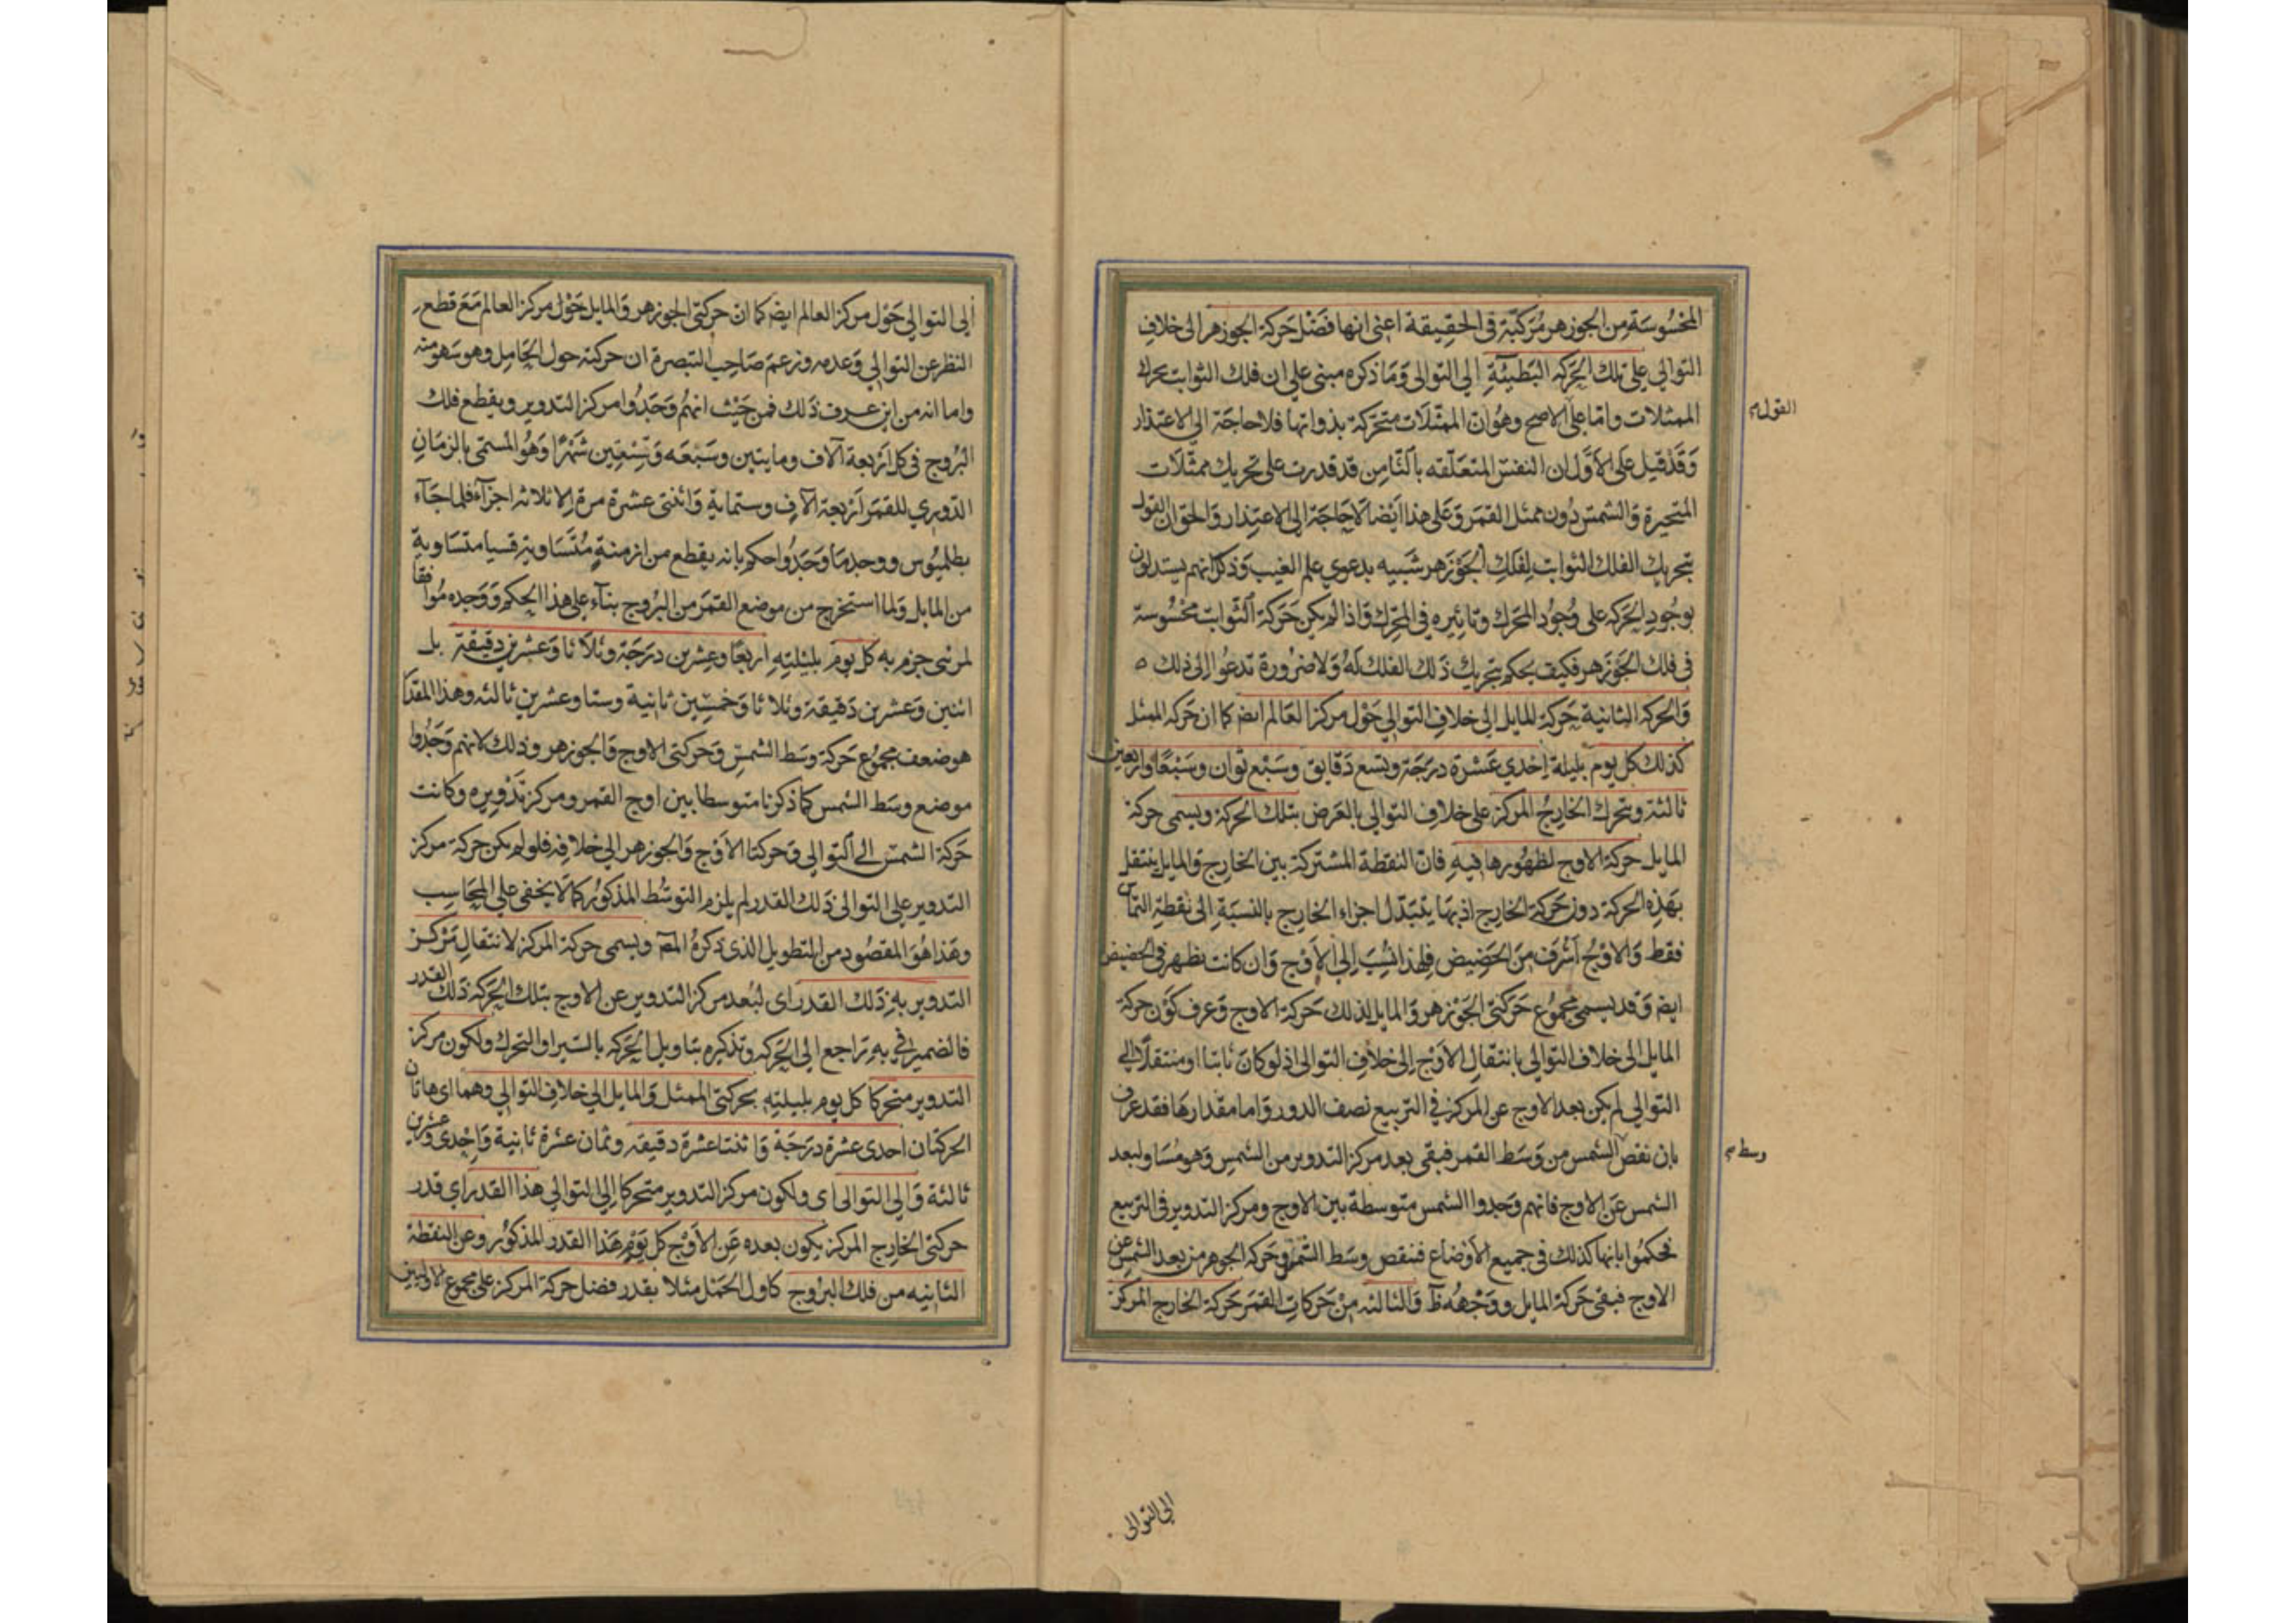 المحسوسة من الجوزهر مركبة في الحقيقة اعني انها فضل حركة الجوزهر الى خلاف
التوالي على تلك الحركه البطيئة الي التوالى وما ذكره مبنى على ان فلك الثوابت يحرك
الممثلات واما على الاصح وهو ان الممثلات متحركة بذواتها فلا حاجة الي الاعتذار
القول م
وقد قيل على الاول ان النفس المتعلقه بالثامن قد قدرت على تحريك ممثلات
المتحيرة والشمس دون ممثل القمر وعلى هذا ايضا لا حاجة الى الاعتذار والحق ان القول
بتحريك الفلك الثوابت لفلك الجوزهر شبيه بدعوي علم الغيب وذكر انهم يستدلون
بوجود الحركه على وجود المحرك وتاثيره في المتحرك واذا لم يكن حركة الثوابت محسوسة
في فلك الجوزهر فكيف يحكم بتحريك ذلك الفلك له ولا ضرورة تدعوا الى ذلك ه
والحركه الثانية حركة للمايل الى خلاف التوالي حول مركز العالم ايض كما ان حركه الممثل
كذلك كل يوم بليلة احدي عشرة درجة وتسع دقايق وسبع ثوان وسبعا واربعين
ثالثة ويتحرك الخارج المركز على خلاف التوالي بالعرض بتلك الحركة ويسمى حركة
المايل حركة الاوج لظهورها فيه فان النقطة المشتركة بين الخارج والمايل ينتقل
بهذه الحركة دون حركة الخارج اذ بها يتبدل اجزاء الخارج بالنسبة الى نقطة التماس
فقط والاوج اشرف من الحضيض فلهذا نسب الي الاوج وان كانت يظهر في الحضيض
ايض وقد يسمى مجموع حركتى الجوزهر والمايل لذلك حركة الاوج وعرف كون حركة
المايل الى خلاف التوالي بانتقال الاوج الى خلاف التوالى اذ لو كان ثابتا او منتقلا الى
التوالى لم يكن بعد الاوج عن المركز في التربيع نصف الدور واما مقدارها فقد عرف
بان نقص الشمس من وسط القمر فبقى بعد مركز التدوير من الشمس وهو مساو لبعد
وسط م
الشمس عن الاوج فانهم وجدوا الشمس متوسطة بين الاوج ومركز التدوير فى التربيع
فحكموا بانها كذلك فى جميع الاوضاع فنقص وسط الشمس وحركه الجوهر من بعد الشمس عن
الاوج فبقى حركة المايل ووجهه ظ والثالثه من حركات القمر حركة الخارج المركز
الى التوالى
الى التوالي حول مركز العالم ايض كما ان حركتى الجوزهر والمايل حول مركز العالم مع قطع
النظر عن التوالي وعدمه وزعم صاحب التبصرة ان حركته حول الحامل وهو سهو منه
واما انه من اين عرف ذلك فمن حيث انهم وجدوا مركز التدوير ويقطع فلك
البروج فى كل اربعة آلاف ومايتين وسبعه وتسعين شهرا وهو المسمى بالزمان
الدوري للقمر اربعة آلاف وستماية واثنتى عشرة مرة الا ثلاثه اجزآء فلما جآء
بطلميوس ووجد ما وجدوا حكم بانه يقطع من ازمنة متساوية قسيا متساوية
من المايل ولما استخرج من موضع القمر من البروج بنآء على هذا الحكم ووجده موافقا
لمرئى جزم به كل يوم بليليته اربعا وعشرين درجة وثلاثا وعشرين دقيقة بل
اثنين وعشرين دقيقة وثلاثا وخمسين ثانية وستا وعشرين ثالثه وهذا المقدار
هو ضعف مجموع حركة وسط الشمس وحركتى الاوج والجوزهر وذلك لانهم وجدوا
موضع وسط الشمس كما ذكرنا متوسطا بين اوج القمر ومركز تدويره وكانت
حركة الشمس الى التوالي وحركتا الاوج والجوزهر الي خلافه فلو لم يكن حركة مركز
التدوير على التوالى ذلك القدر لم يلزم التوسط المذكور كما لا يخفى علي المحاسب
وهذا هو المقصود من التطويل الذى ذكره المص ويسمى حركة المركز لانتقال مركز
التدوير به ذلك القدر اى لبعد مركز التدوير عن الاوج بتلك الحركة ذلك القدر
فالضمير في به تراجع الى الحركه وتذكيره بتاويل الحركه بالسير او التحرك ولكون مركز
التدوير متحركا كل يوم بليليته بحركتى الممثل والمايل الي خلاف التوالي وهما اى هاتان
الحركتان احدى عشرة درجة واثنتا عشرة دقيقه وثمان عشرة ثانية واحدى وعشرين
ثالثة والي التوالى اى ولكون مركز التدوير متحركا الى التوالي هذا القدر اي قدر
حركتى الخارج المركز يكون بعده عن الاوج كل يوم هذا القدر المذكور وعن النقطة
الثانيه من فلك البروج كاول الحمل مثلا بقدر فضل حركة المركز على مجموع الاوليين